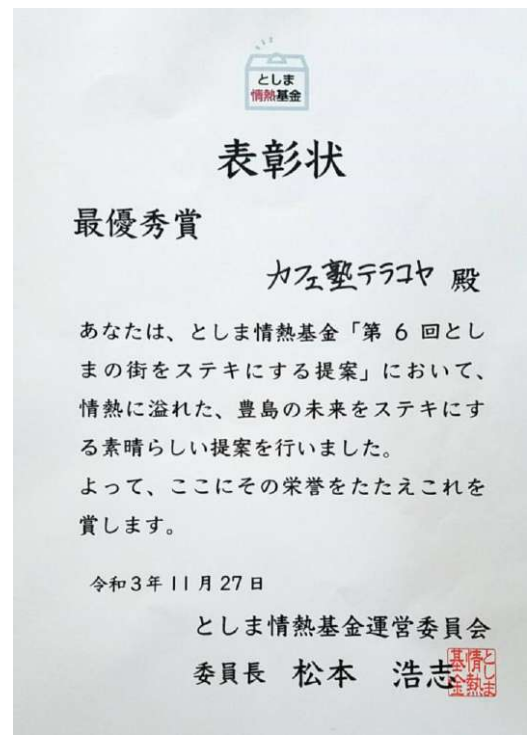 としま
情熱基金
表彰状
最優秀賞
カフェ塾テラコヤ 殿
あなたは、としま情熱基金「第 6 回とし
まの街をステキにする提案」において、
情熱に溢れた、豊島の未来をステキにす
る素晴らしい提案を行いました。
よって、ここにその栄誉をたたえこれを
賞します。
令和3年11月27日
としま情熱基金運営委員会
委員長 松本 浩志
としま
情熱
基金